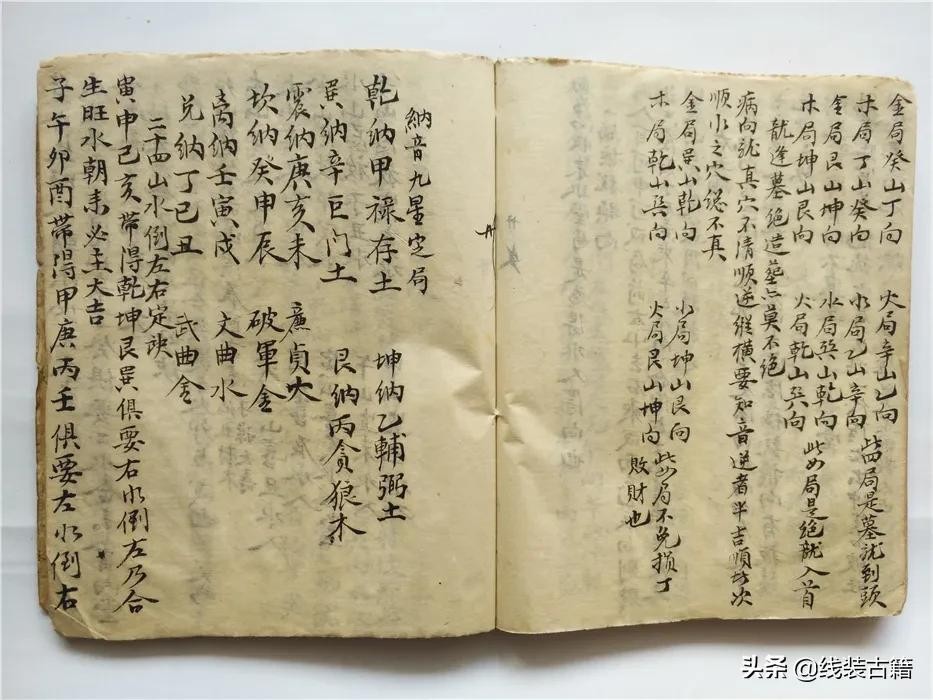 金局癸山丁向 火局辛山乙向
木局丁山癸向 水局乙山辛向 此四局是墓龙到頭
金局艮山坤向 水局巽山乾向
木局坤山艮向 火局乾山巽向 此四局是绝龍入首
龍逢墓絶造塟亡莫不绝
病向龙真穴不清順逆縱横要知音逆者半吉順坟次
順水之穴總不真
金局巽山乾向 水局坤山艮向
木局乾山巽向 火局艮山坤向 此四局不免损丁
敗財也
納音九星定局
乾納甲禄存土 坤纳乙輔弼土
巽纳辛巨门土 艮纳丙贪狼木
震纳庚亥未 廉貞火
坎纳癸申辰 破軍金
离纳壬寅戌 文曲水
兑纳丁巳丑 武曲金
二十四山水倒左右定訣
寅申己亥帶得乾坤艮巽俱要右水倒左乃合
生旺水朝来必主大吉
子午卯酉帶得甲庚丙壬俱要左水倒右
头条 @线装古籍